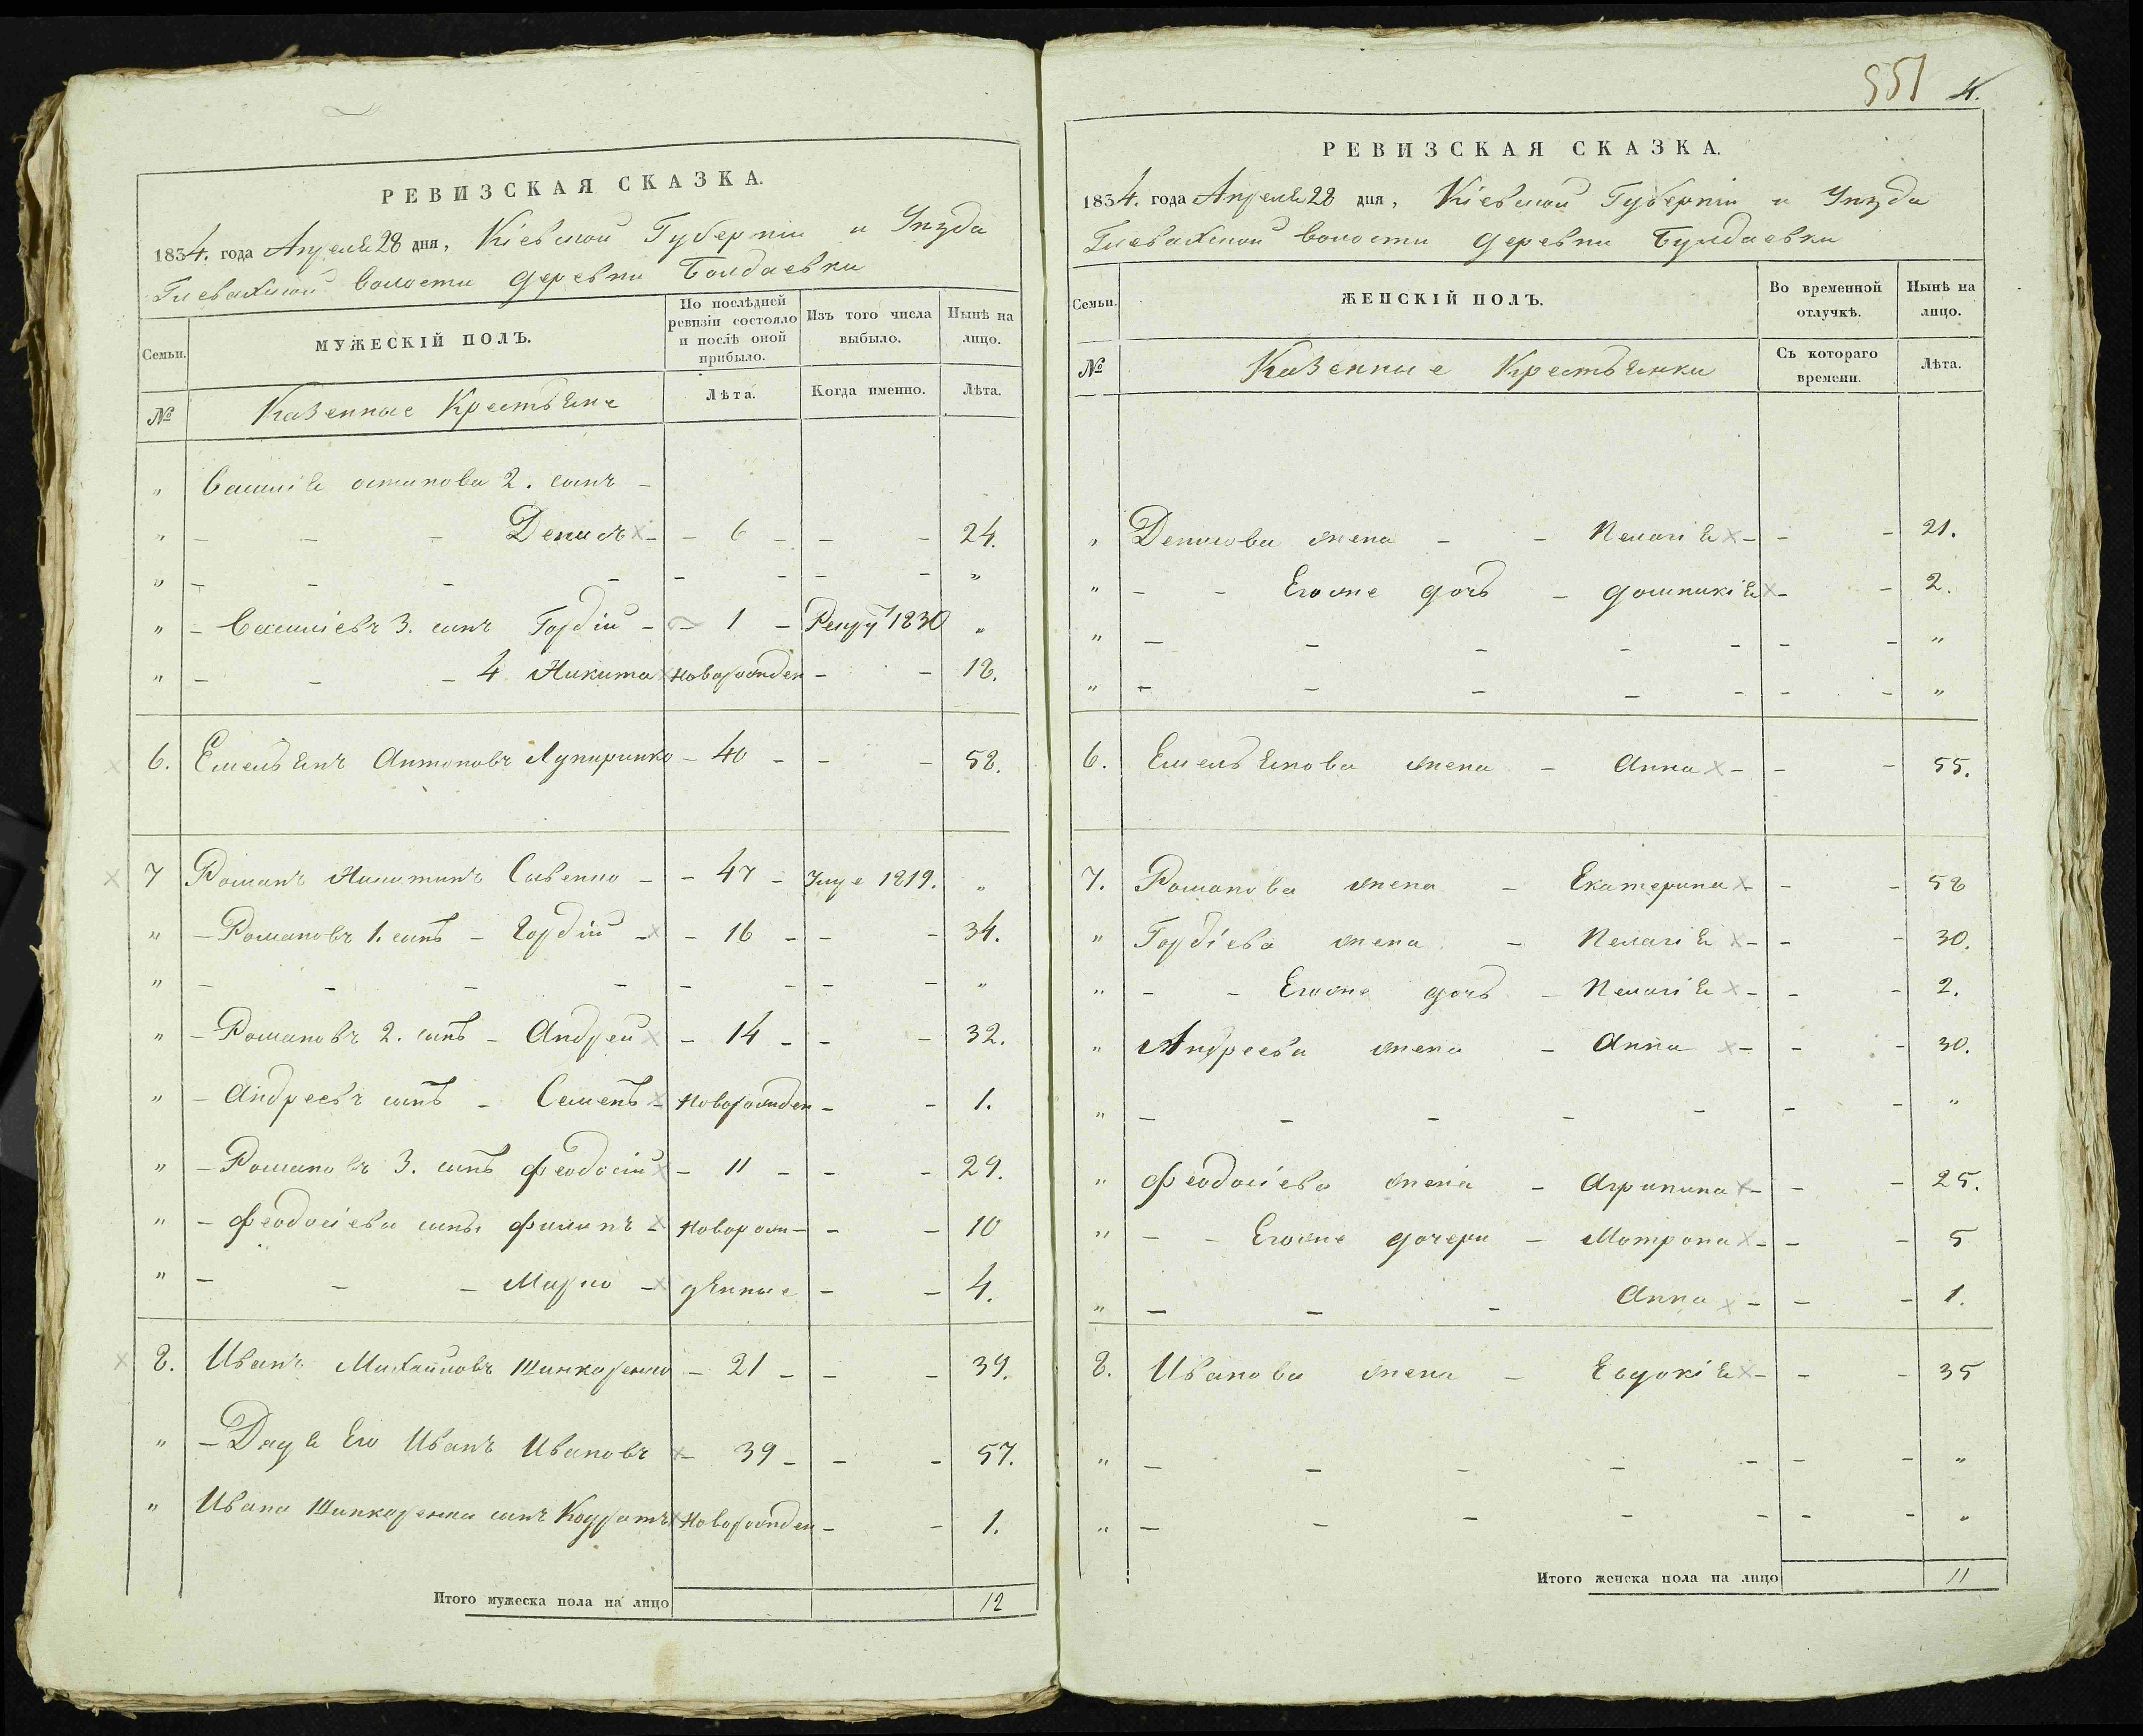 РЕВИЗСКАЯ СКАЗКА.
1834. года Апреля 28 дня, Кіевской Губерніи и Уезда
Глевахской волости деревни Болдаевки
Семьи.
МУЖЕСКІЙ ПОЛЪ.
По послѣдней ревизіи состояло и послѣ оной прибыло.
Изъ того числа выбыло.
Нынѣ на лицо.
№
Казенные Крестьяне
Лѣта.
Когда именно.
Лѣта.
" Василія остапова 2. сынъ -
" - - - Денисъ - - 6 - - - 24.
" - - - - - - - - "
" - Василіевъ 3. сынъ Гордій - - 1 - Рекру 1830 "
" - - - 4 Никита Новорожден - - 18.
6. Емельянъ Антоновъ - 40 - - - 58.
7 Романъ Никитинъ Савенко - - 47 - Умре 1819. "
" - Романовъ 1. сынъ - Гордій - - 16 - - - 34.
" - - - - - - - - "
" - Романовъ 2. сынъ - Андрей - 14 - - - 32.
" - Андреевъ сынъ - Семенъ - Новорожден - - 1.
" - Романовъ 3. сынъ Феодосій - 11 - - - 29.
" - Феодосіева сыны Филипъ - Новорож - - - 10
" - - - Марко - дѣнные - - 4.
8. Иванъ Михайловъ Шинкаренко - 21 - - - 39.
" - Дядя Его Иванъ Ивановъ - 39 - - - 57.
" Ивана Шинкаренка сынъ Кодратъ Новорожден - - 1.
Итого мужеска пола на лицо 12
551 4.
РЕВИЗСКАЯ СКАЗКА.
1834. года Апреля 28 дня, Кіевской Губерніи и Уезда
Глевахской волости деревни Булдаевки
Семьи.
ЖЕНСКІЙ ПОЛЪ.
Во временной отлучкѣ.
Нынѣ на лицо.
№
Казенные Крестьянки
Съ котораго времени.
Лѣта.
" Денисова жена - - Пелагія - - - 21.
" - - Егоже дочь - Домникія - - 2.
" - - - - - - - "
" - - - - - - - "
6. Емельянова жена - Анна - - - 55.
7. Романова жена - Екатерина - - - 58
" Гордіева жена - Пелагія - - - 30.
" - - Егоже дочь - Пелагія - - - 2.
" Андреева жена - Анна - - - 30.
" - - - - - - - "
" Феодосіева жена - Агрипина - - - 25.
" - - Егоже дочери - Мотрона - - - 5
" - - - Анна - - - 1.
8. Иванова жена - Евдокія - - - 35
" - - - - - - - "
" - - - - - - - "
Итого женска пола на лицо 11